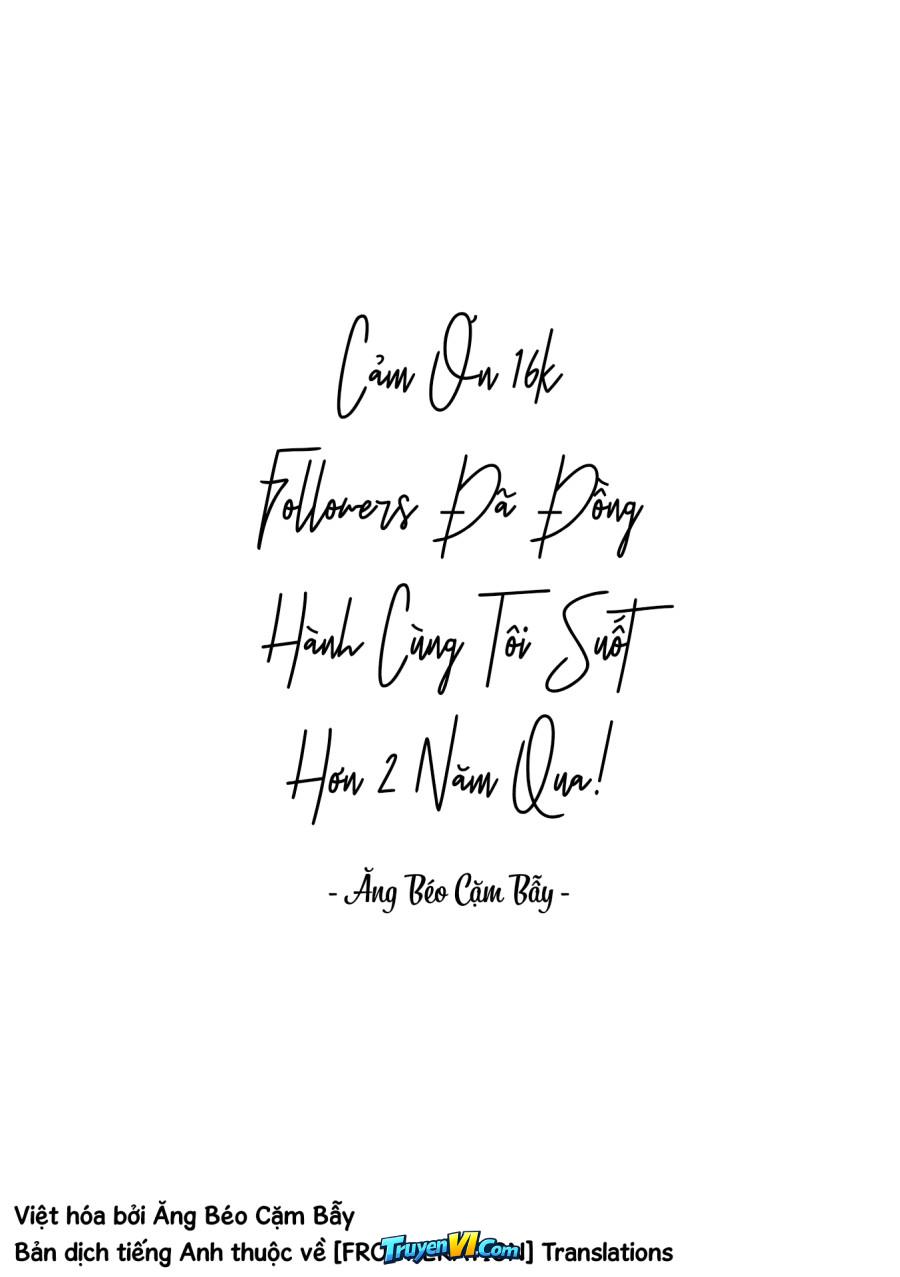 Cảm Ơn 16k
Followers Đã Đồng
Hành Cùng Tôi Suốt
Hơn 2 Năm Qua!
- Ăng Béo Cặm Bẫy -
Việt hóa bởi Ăng Béo Cặm Bẫy
Bản dịch tiếng Anh thuộc về Translations
TruyenVI.Com